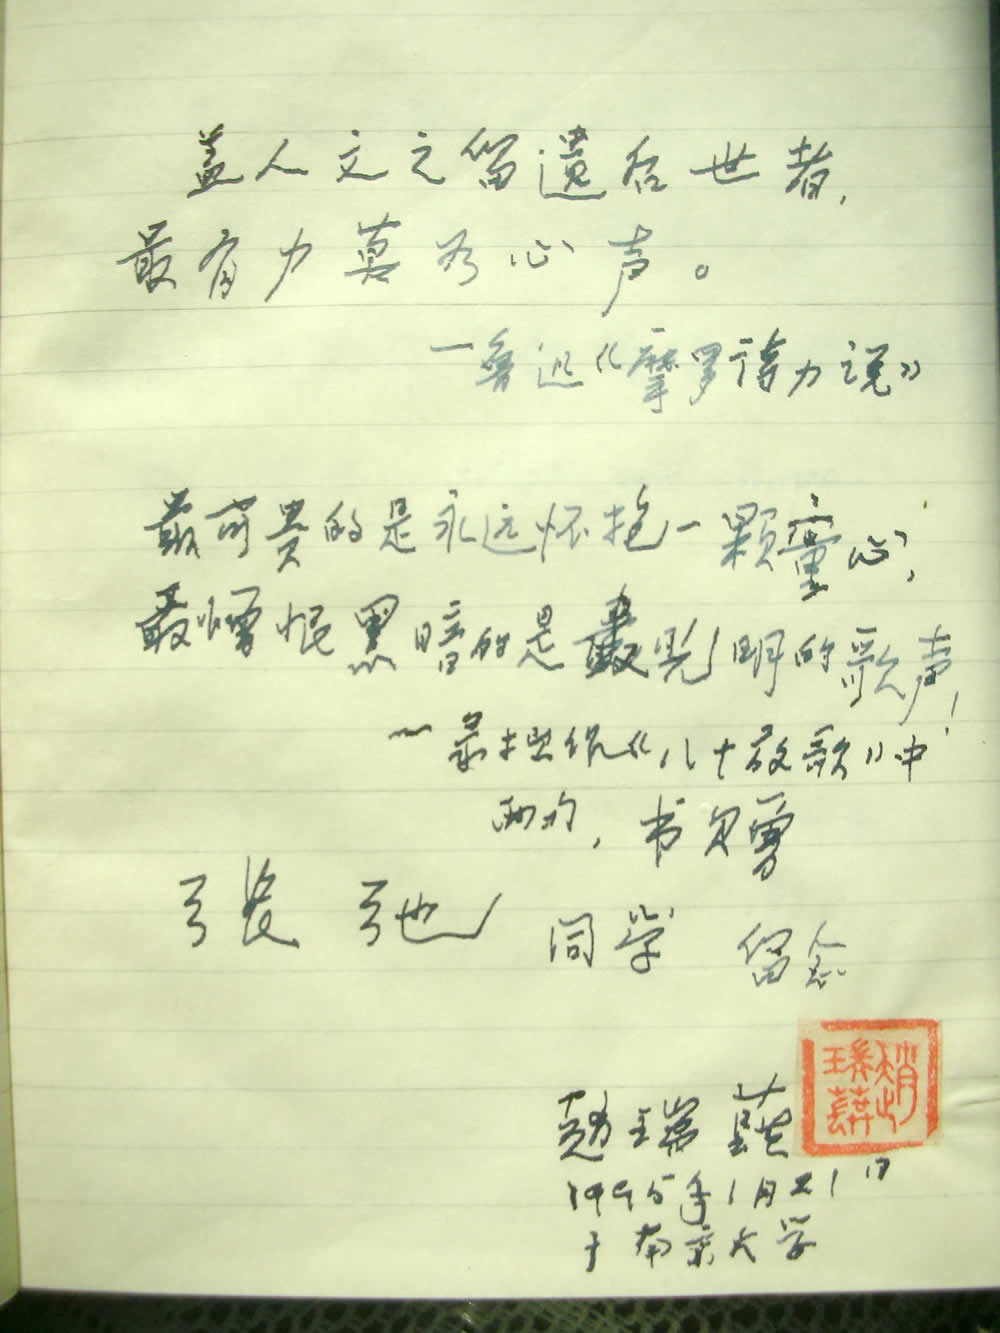 盖人文之留遗后世者，
最有力莫如心声。
—鲁迅《摩罗诗力说》
最可贵的是永远怀抱一颗童心，
最憎恨黑暗的是最光明的歌声！
—录拙作《八十放歌》中
两句，书赠
张弛
同学 留念
赵瑞蕻
1995年1月21日
于南京大学
趙瑞蕻